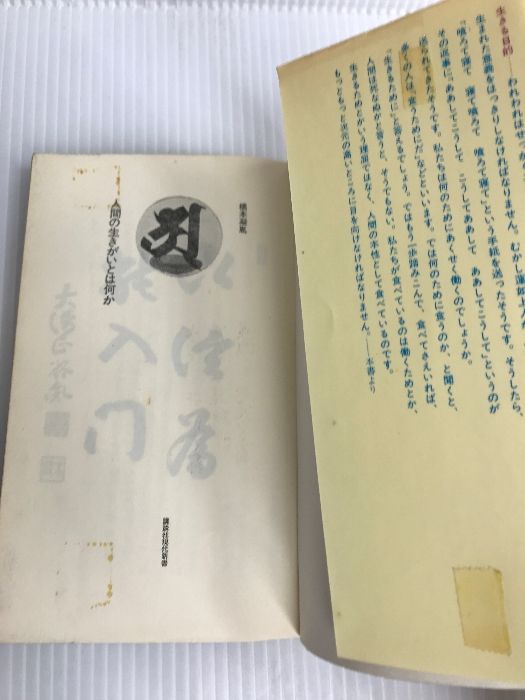 生きる目的――われわれは、
生まれた意義をはっきりしなければなりません。むかし蓮如上人
「喰ろて寝て 寝て喰ろて 喰ろて寝て」という手紙を送ったそうです。そうしたら、
その返事に「ああしてこうして こうしてああして ああしてこうして」というのが
送られてきたそうです。私たちは何のためにあくせく働くのでしょうか。
多くの人は、食うためにだ」などといいます。では何のために食うのか、と聞くと、
「生きるために」と答えるでしょう。ではもう一歩踏みこんで、食べてさえいれば、
人間は死なぬかと言うと、そうでもない。私たちが食べているのは働くためとか、
生きるためとかいう理屈ではなく、人間の本性として食べているのです。
もっともっと次元の高いところに目を向けなければなりません。――本書より
橋本凝胤
人間の生きがいとは何か
講談社現代新書
入門